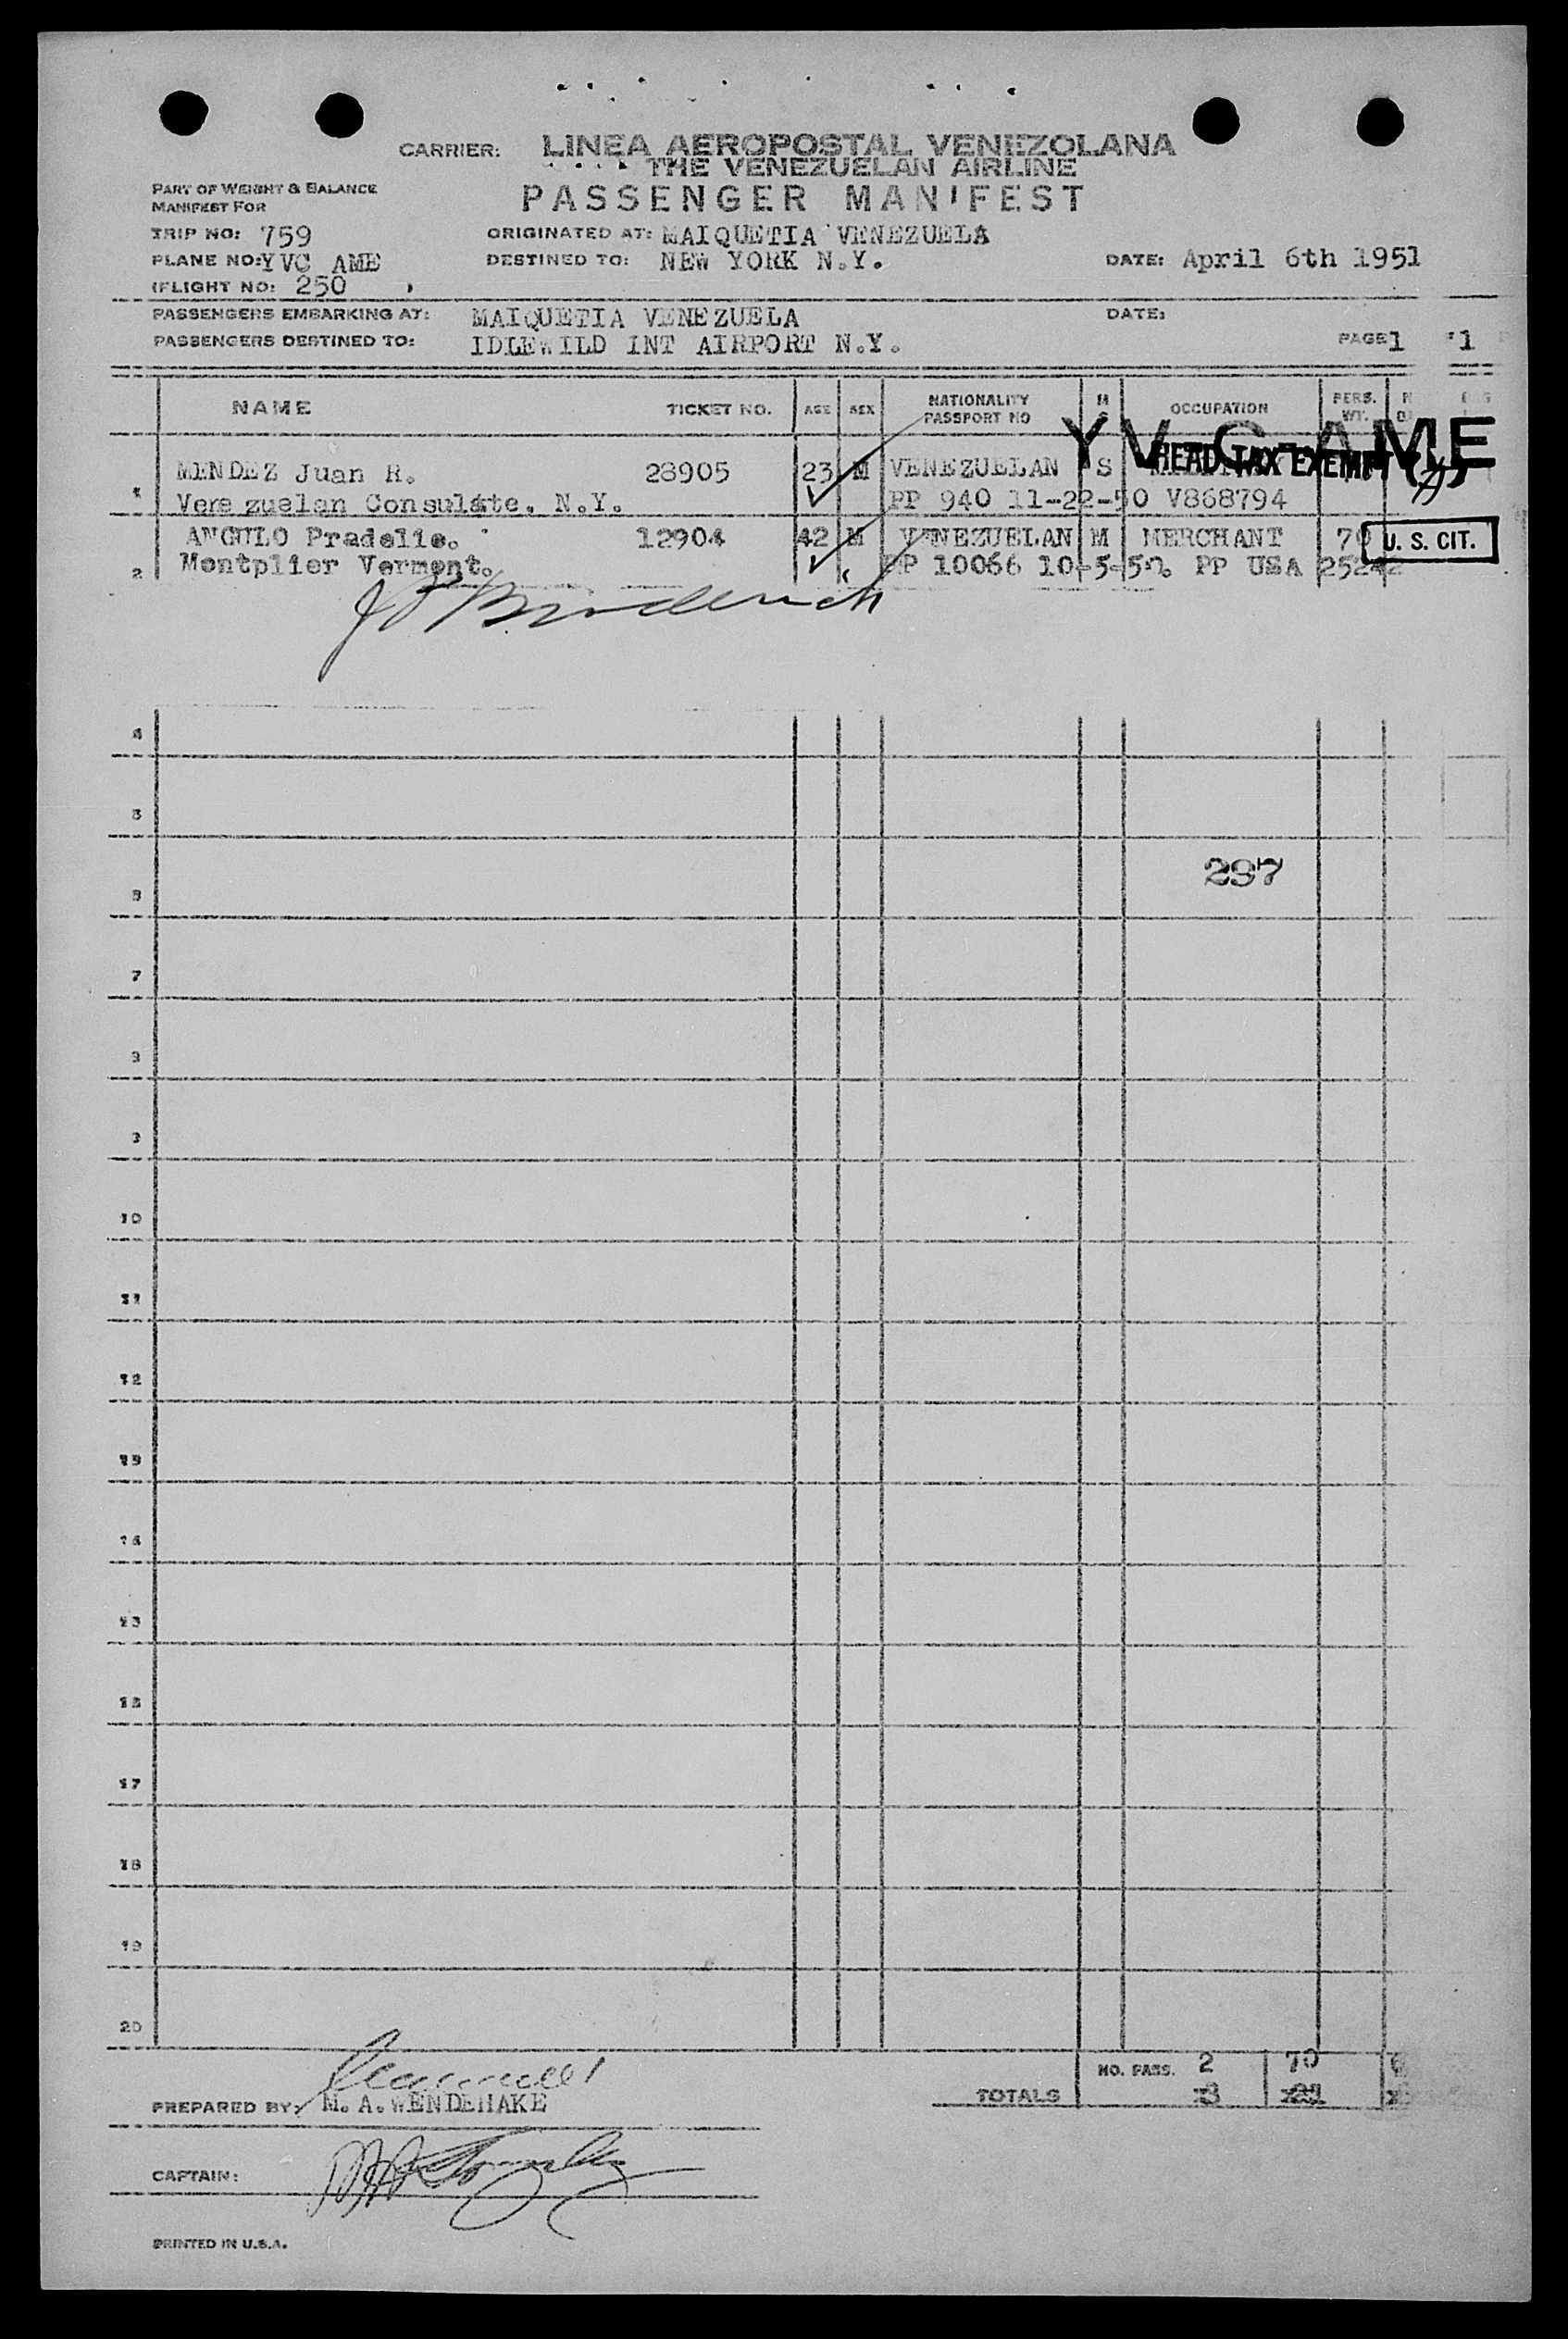 CARRIER: LINEA AEROPOSTAL VENEZOLANA
THE VENEZUELAN AIRLINE
PASSENGER MANIFEST
PART OF WEIGHT & BALANCE
MANIFEST FOR
TRIP NO: 759
ORIGINATED AT: MAIQUETIA VENEZUELA
PLANE NO: YVC AME
DESTINED TO: NEW YORK N.Y.
DATE: April 6th 1951
FLIGHT NO: 250
PASSENGERS EMBARKING AT: MAIQUETIA VENEZUELA
DATE:
PASSENGERS DESTINED TO: IDLEWILD INT AIRPORT N.Y.
PAGE 1 1
NAME TICKET NO. AGE SEX NATIONALITY PASSPORT NO M S OCCUPATION PERS. WT.
YV-C-AME
HEAD TAX EXEMPT
1 MENDEZ Juan R. 28905 23 M VENEZUELAN S
Venezuelan Consulate. N.Y. PP 940 11-22-50 V868794
ANGULO Pradelio. 12904 42 M VENEZUELAN M MERCHANT 70 U. S. CIT.
2 Montplier Vermont. PP 10066 10-5-50. PP USA
4
5
297
6
7
8
9
10
11
12
13
14
15
16
17
18
19
20
NO. PASS. 2 70
TOTALS
PREPARED BY: M. A. WENDEHAKE
CAPTAIN:
PRINTED IN U.S.A.